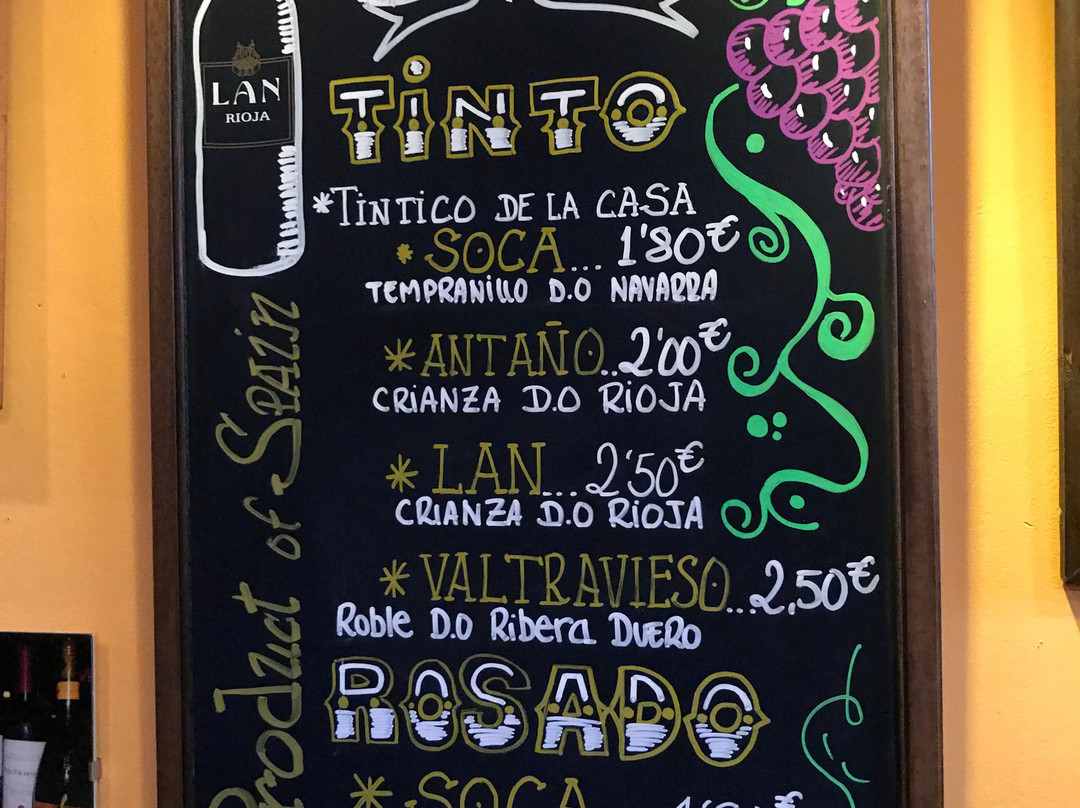 LAN
RIOJA
TINTO
*TINTICO DE LA CASA
* SOCA... 1'80€
TEMPRANILLO D.O NAVARRA
* ANTAÑO.. 2'00€
CRIANZA D.O RIOJA
* LAN... 2'50€
CRIANZA D.O RIOJA
* VALTRAVIESO... 2,50€
Roble D.O Ribera DUERO
ROSADO
* SOCA
Product of Spain